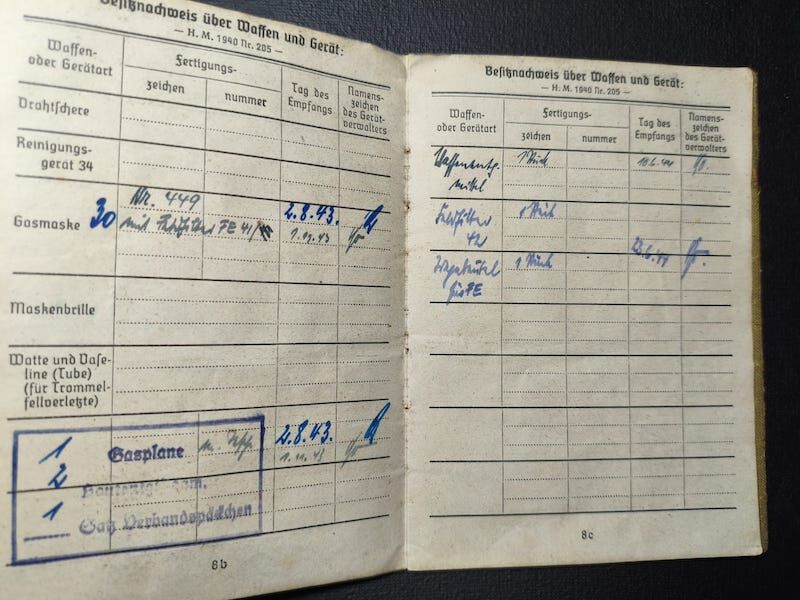 Besitznachweis über Waffen und Gerät:
— H. M. 1940 Nr. 205 —
Waffen-
oder Gerätart
Fertigungs-
zeichen
nummer
Tag des
Empfangs
Namens-
zeichen
des Gerät-
verwalters
Drahtschere
Reinigungs-
gerät 34
Gasmaske 30
Nr. 449
mit Feldfilter FE 41/
2.8.43.
1.11.43
Maskenbrille
Watte und Vase-
line (Tube)
(für Trommel-
fellverletzte)
1 Gasplane
2.8.43.
1.11.43
2
1 Satz Verbandspäckchen
8b
Besitznachweis über Waffen und Gerät:
— H. M. 1940 Nr. 205 —
Waffen-
oder Gerätart
Fertigungs-
zeichen
nummer
Tag des
Empfangs
Namens-
zeichen
des Gerät-
verwalters
Waffenentg.
mittel
1 Stück
10.6.44
Feldfilter
42
1 Stück
Tragebeutel
für FE
1 Stück
8c